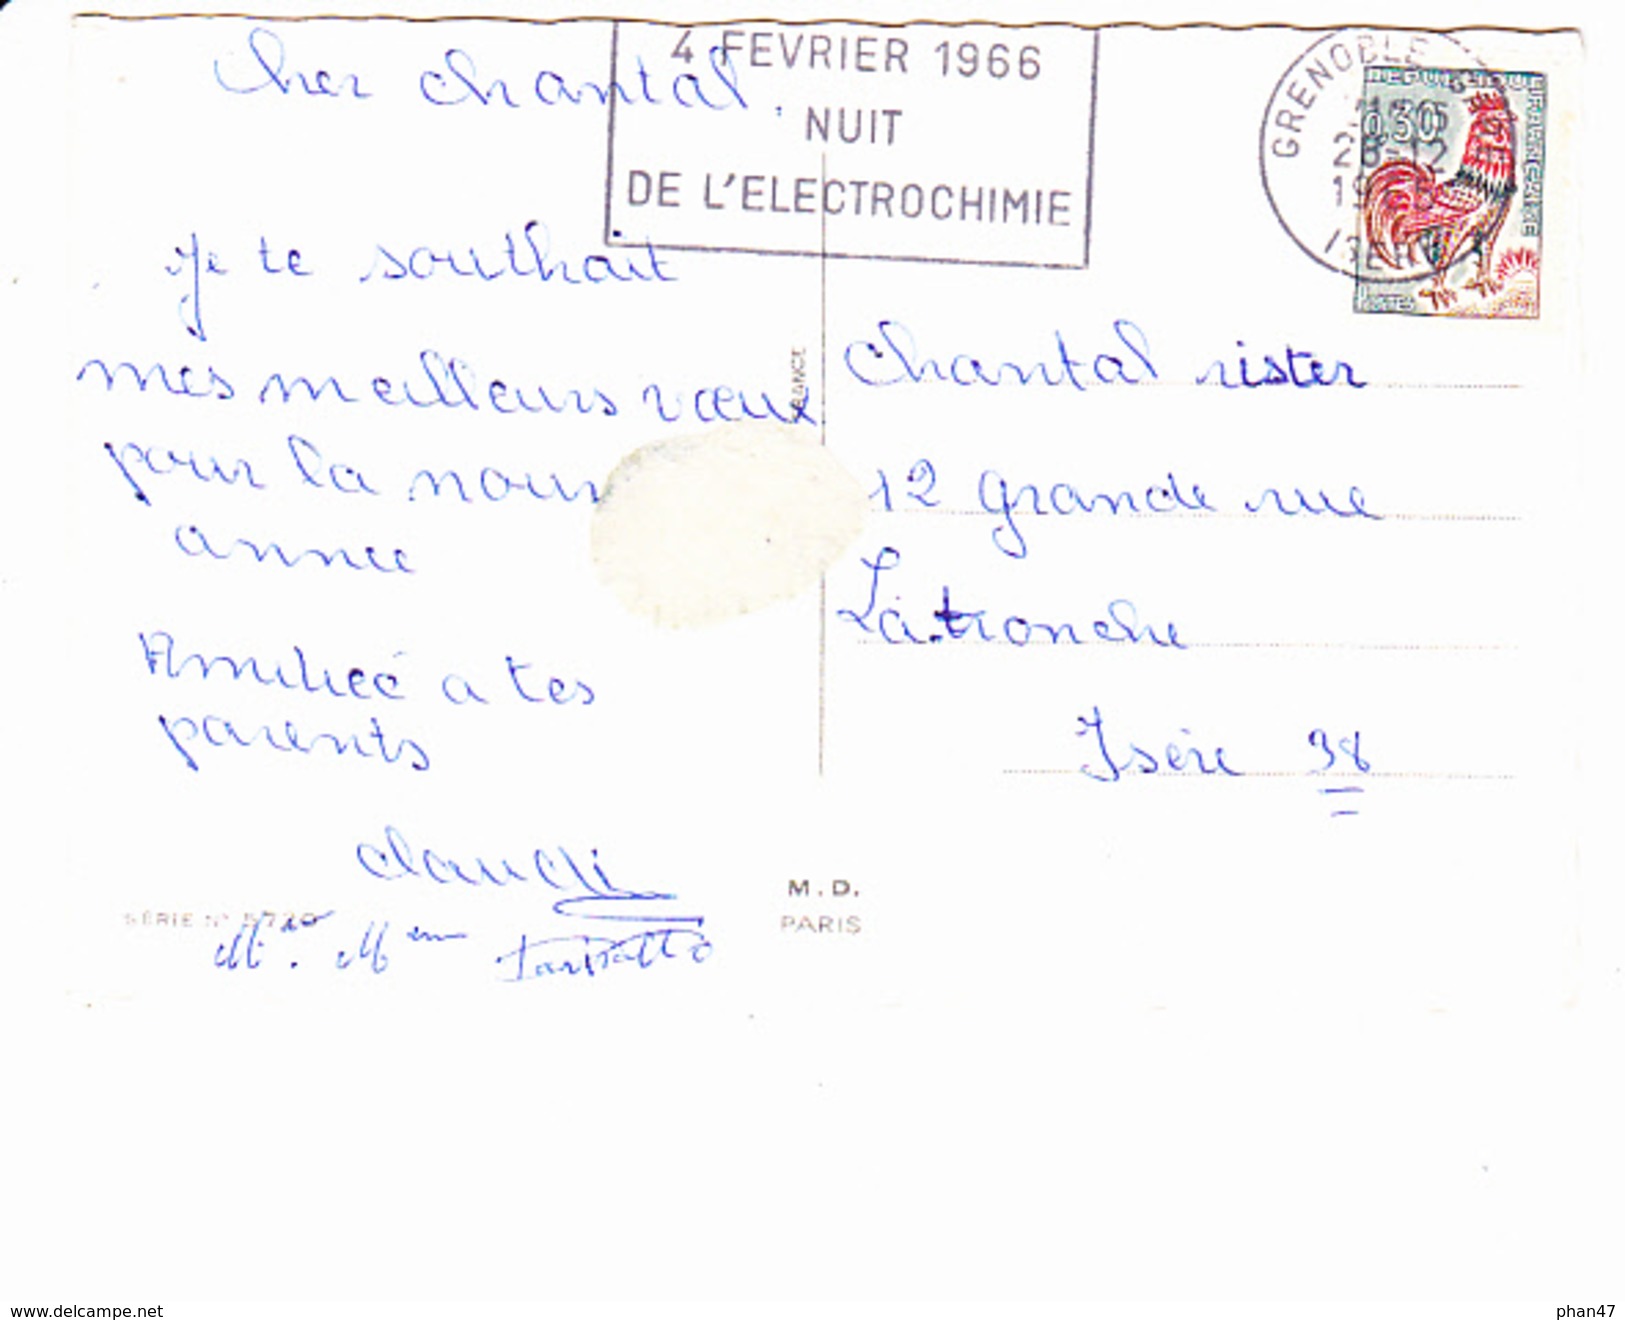 cher chantal,
Je te southait
mes meilleurs vœux
pour la nouv
annee
Amitieé a tes
parents
claudi
Mr. Mem
SÉRIE N° 5720
4 FEVRIER 1966
NUIT
DE L'ELECTROCHIMIE
FRANCE
M.D.
PARIS
GRENOBLE
28-12
ISERE
REPUBLIQUE FRANCAISE
0,30
POSTES
Chantal rister
12 grande rue
La.tronche
Isère 38
www.delcampe.net
phan47